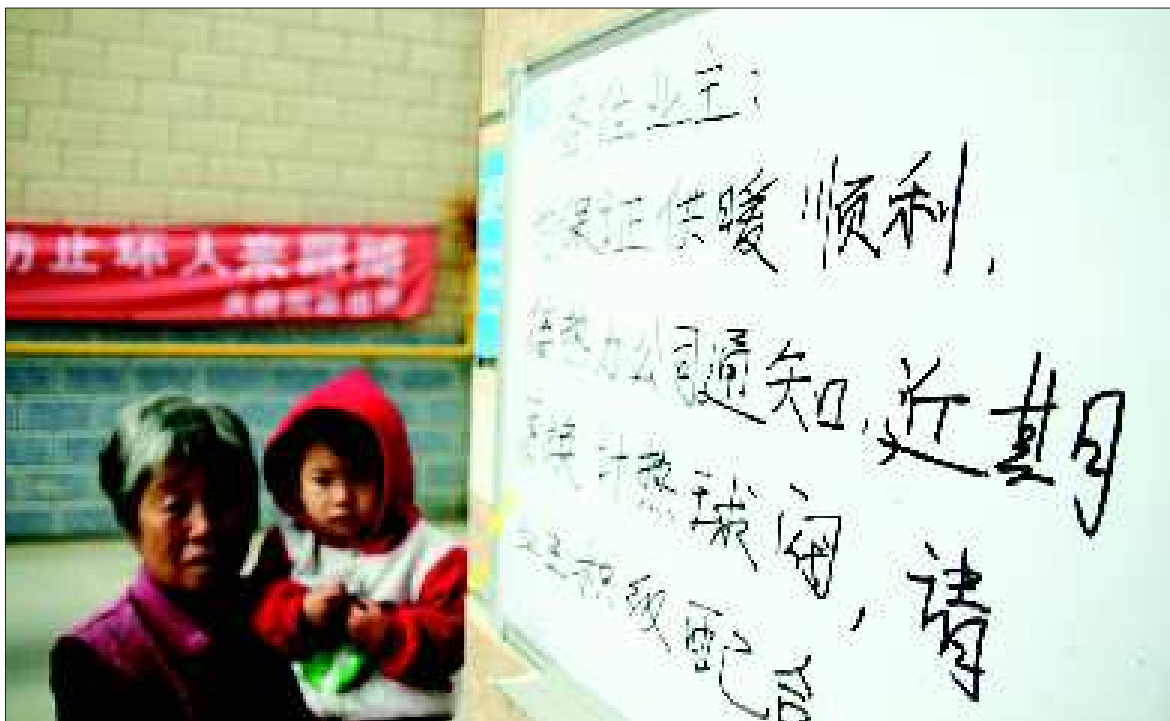 止坏人来
各位业主:
为保证供暖顺利,
热力公司通知,近期
换计热球阀,请
业主积极配合